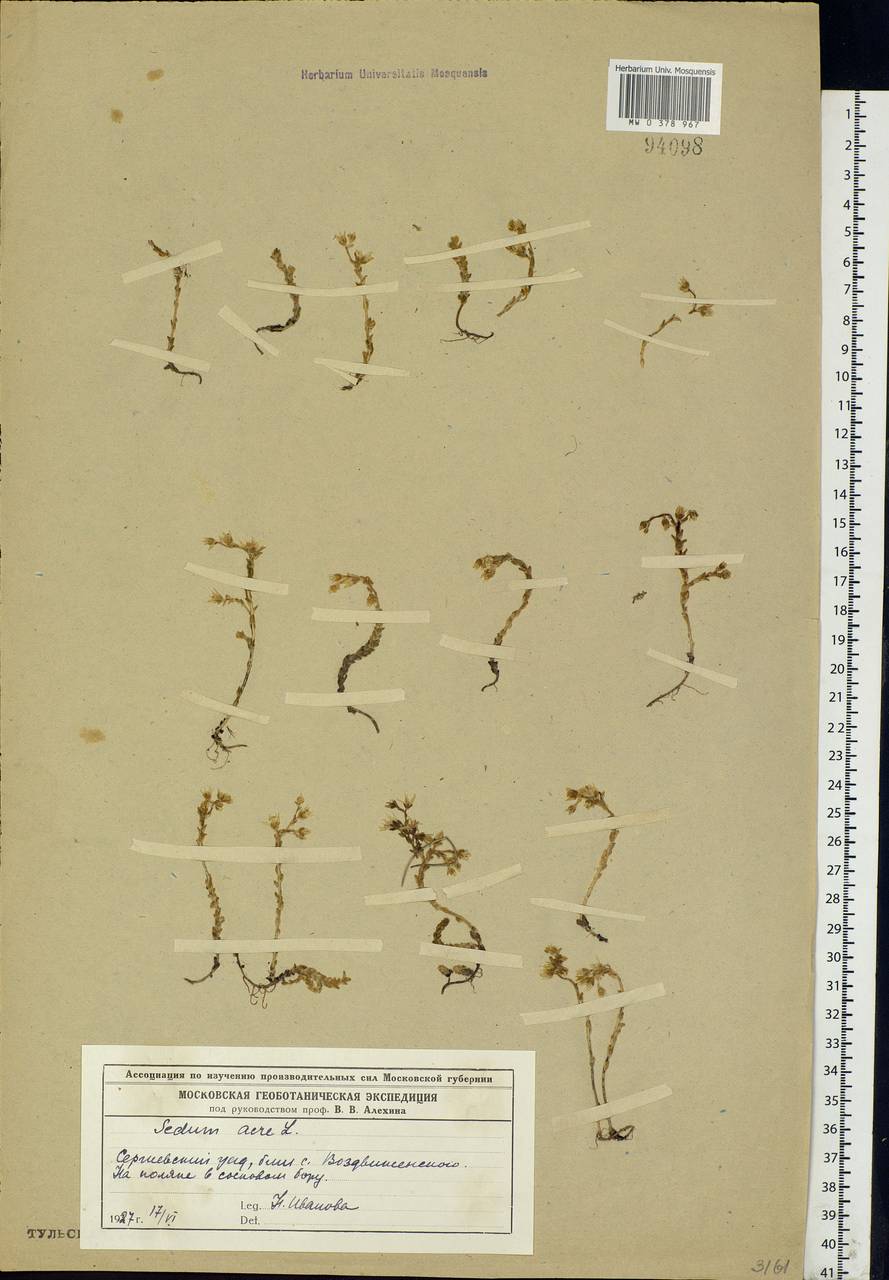 Herbarium Universitatis Mosquensis
Herbarium Univ. Mosquensis
MW 0 378 967
94098
1
2
3
4
5
6
7
8
9
10
11
12
13
14
15
16
17
18
19
20
21
22
23
24
25
26
27
28
29
30
31
32
33
34
35
36
37
38
39
40
41
Ассоциация по изучению производительных сил Московской губернии
МОСКОВСКАЯ ГЕОБОТАНИЧЕСКАЯ ЭКСПЕДИЦИЯ
под руководством проф. В. В. Алехина
Sedum acre L.
Сергиевский уезд, близ с. Воздвиженского.
На поляне в сосновом бору.
Leg. Н. Иванова
1927 г. 17/VI
Det.
ТУЛЬС
3161